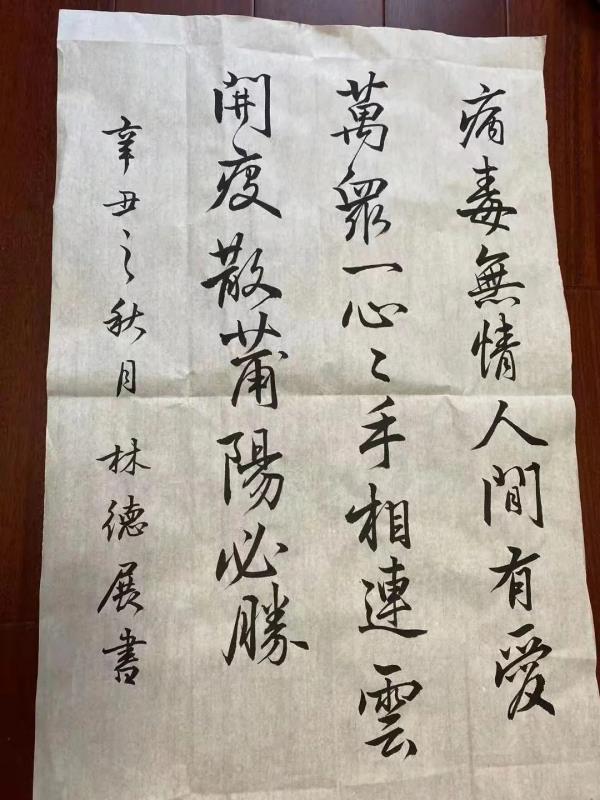 病毒無情人間有愛
萬衆一心〻手相連雲
開疫散莆陽必勝
辛丑之秋月 林德展書